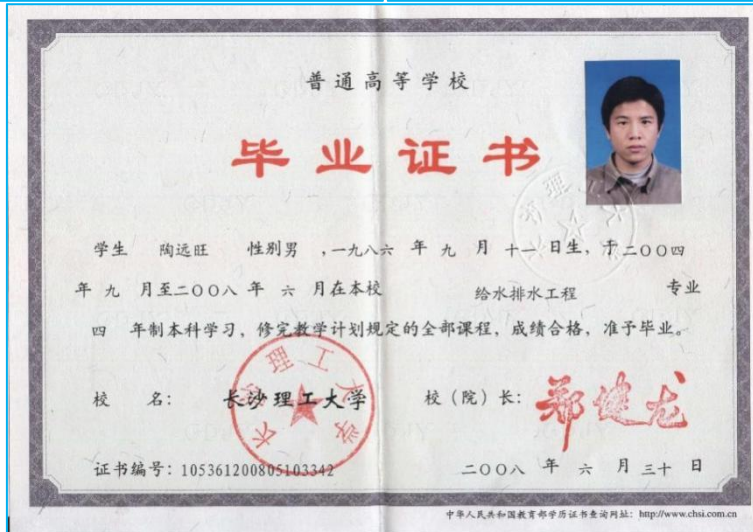 普通高等学校
毕业证书
学生 陶远旺 性别男 ,一九八六 年 九 月 十一 日生，于二〇〇四
年 九 月至二〇〇八 年 六 月在本校 给水排水工程 专业
四 年制本科学习，修完教学计划规定的全部课程，成绩合格，准予毕业。
校 名： 长沙理工大学 校（院）长： 郑健龙
长沙理工大学
证书编号：105361200805103342 二〇〇八 年 六 月 三十 日
中华人民共和国教育部学历证书查询网址：http://www.chsi.com.cn